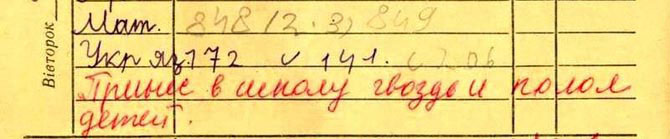 Вівторок
Мат. 848 (2.3) 849
Укр яз 172 141.
Принес в школу гвозди и колол
детей.